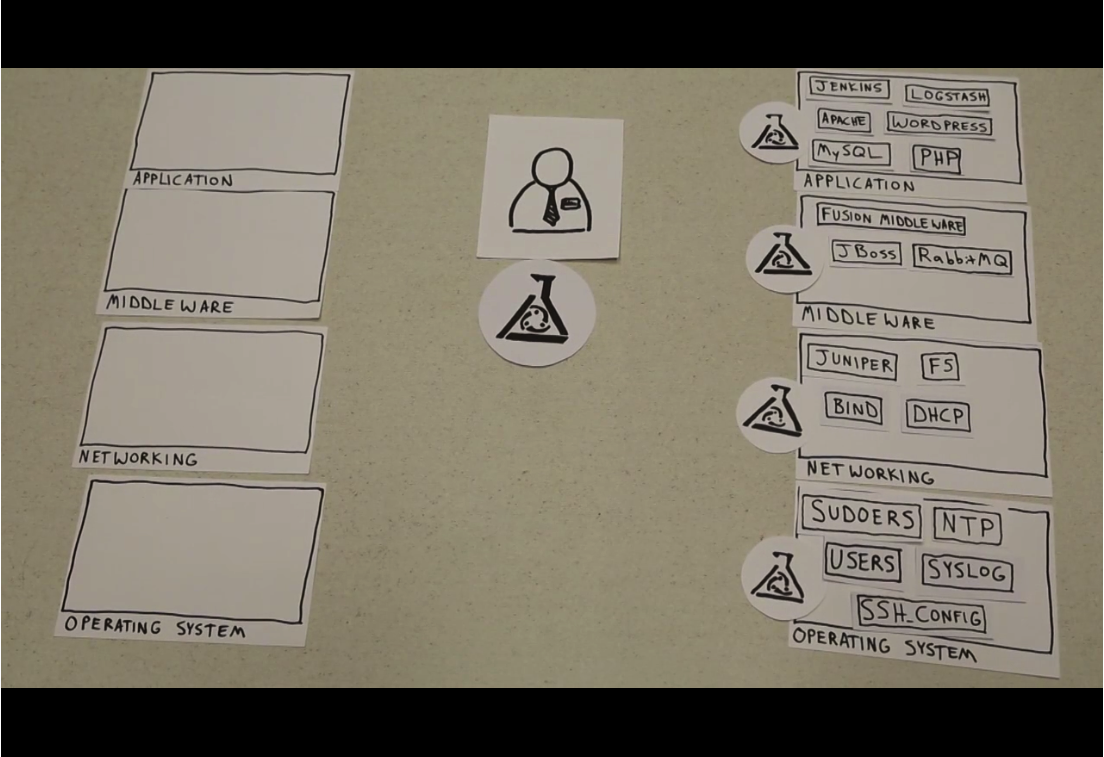 APPLICATION
MIDDLEWARE
NETWORKING
OPERATING SYSTEM
JENKINS
LOGSTASH
APACHE
WORDPRESS
MySQL
PHP
APPLICATION
FUSION MIDDLEWARE
JBoss
RabbitMQ
MIDDLEWARE
JUNIPER
F5
BIND
DHCP
NETWORKING
SUDOERS
NTP
USERS
SYSLOG
SSH_CONFIG
OPERATING SYSTEM